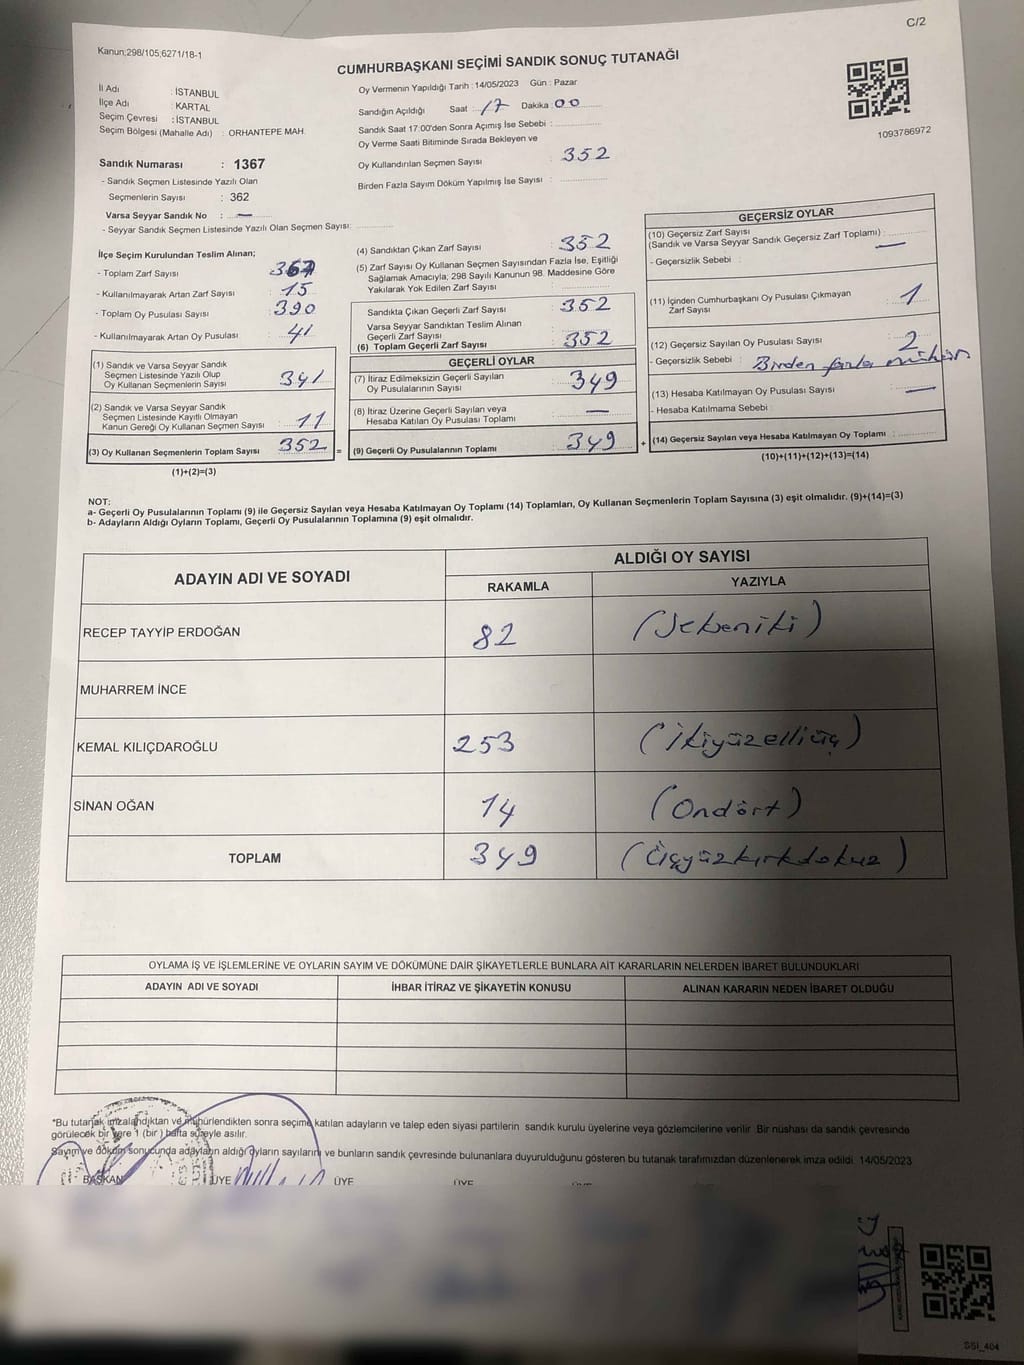 C/2
Kanun;298/105;6271/18-1
CUMHURBAŞKANI SEÇİMİ SANDIK SONUÇ TUTANAĞI
İl Adı : İSTANBUL
İlçe Adı : KARTAL
Seçim Çevresi : İSTANBUL
Seçim Bölgesi (Mahalle Adı) : ORHANTEPE MAH.
Sandık Numarası : 1367
- Sandık Seçmen Listesinde Yazılı Olan
Seçmenlerin Sayısı : 362
Varsa Seyyar Sandık No : —
- Seyyar Sandık Seçmen Listesinde Yazılı Olan Seçmen Sayısı:
Oy Vermenin Yapıldığı Tarih : 14/05/2023 Gün : Pazar
Sandığın Açıldığı Saat : 17 Dakika : 00
Sandık Saat 17:00'den Sonra Açımış İse Sebebi :
Oy Verme Saati Bitiminde Sırada Bekleyen ve
Oy Kullandırılan Seçmen Sayısı : 352
Birden Fazla Sayım Döküm Yapılmış İse Sayısı :
1093786972
İlçe Seçim Kurulundan Teslim Alınan;
- Toplam Zarf Sayısı : 367
- Kullanılmayarak Artan Zarf Sayısı : 15
- Toplam Oy Pusulası Sayısı : 390
- Kullanılmayarak Artan Oy Pusulası : 41
(1) Sandık ve Varsa Seyyar Sandık
Seçmen Listesinde Yazılı Olup
Oy Kullanan Seçmenlerin Sayısı : 341
(2) Sandık ve Varsa Seyyar Sandık
Seçmen Listesinde Kayıtlı Olmayan
Kanun Gereği Oy Kullanan Seçmen Sayısı : 11
(3) Oy Kullanan Seçmenlerin Toplam Sayısı : 352 =
(1)+(2)=(3)
(4) Sandıktan Çıkan Zarf Sayısı : 352
(5) Zarf Sayısı Oy Kullanan Seçmen Sayısından Fazla İse, Eşitliği
Sağlamak Amacıyla, 298 Sayılı Kanunun 98. Maddesine Göre
Yakılarak Yok Edilen Zarf Sayısı :
Sandıkta Çıkan Geçerli Zarf Sayısı : 352
Varsa Seyyar Sandıktan Teslim Alınan
Geçerli Zarf Sayısı
(6) Toplam Geçerli Zarf Sayısı : 352
GEÇERLİ OYLAR
(7) İtiraz Edilmeksizin Geçerli Sayılan
Oy Pusulalarının Sayısı : 349
(8) İtiraz Üzerine Geçerli Sayılan veya
Hesaba Katılan Oy Pusulası Toplamı : —
(9) Geçerli Oy Pusulalarının Toplamı : 349 +
GEÇERSİZ OYLAR
(10) Geçersiz Zarf Sayısı
(Sandık ve Varsa Seyyar Sandık Geçersiz Zarf Toplamı) : —
- Geçersizlik Sebebi :
(11) İçinden Cumhurbaşkanı Oy Pusulası Çıkmayan
Zarf Sayısı : 1
(12) Geçersiz Sayılan Oy Pusulası Sayısı : 2
- Geçersizlik Sebebi : Birden fazla mühür
(13) Hesaba Katılmayan Oy Pusulası Sayısı : —
- Hesaba Katılmama Sebebi :
(14) Geçersiz Sayılan veya Hesaba Katılmayan Oy Toplamı :
(10)+(11)+(12)+(13)=(14)
NOT:
a- Geçerli Oy Pusulalarının Toplamı (9) ile Geçersiz Sayılan veya Hesaba Katılmayan Oy Toplamı (14) Toplamları, Oy Kullanan Seçmenlerin Toplam Sayısına (3) eşit olmalıdır. (9)+(14)=(3)
b- Adayların Aldığı Oyların Toplamı, Geçerli Oy Pusulalarının Toplamına (9) eşit olmalıdır.
ADAYIN ADI VE SOYADI
ALDIĞI OY SAYISI
RAKAMLA YAZIYLA
RECEP TAYYİP ERDOĞAN 82 (Sekseniki)
MUHARREM İNCE
KEMAL KILIÇDAROĞLU 253 (İkiyüzelliüç)
SİNAN OĞAN 14 (Ondört)
TOPLAM 349 (Üçyüzkırkdokuz)
OYLAMA İŞ VE İŞLEMLERİNE VE OYLARIN SAYIM VE DÖKÜMÜNE DAİR ŞİKAYETLERLE BUNLARA AİT KARARLARIN NELERDEN İBARET BULUNDUKLARI
ADAYIN ADI VE SOYADI İHBAR İTİRAZ VE ŞİKAYETİN KONUSU ALINAN KARARIN NEDEN İBARET OLDUĞU
*Bu tutanak imzalandıktan ve mühürlendikten sonra seçime katılan adayların ve talep eden siyasi partilerin sandık kurulu üyelerine veya gözlemcilerine verilir. Bir nüshası da sandık çevresinde
görülecek bir yere 1 (bir) hafta süreyle asılır.
Sayım ve döküm sonucunda adayların aldığı oyların sayılarını ve bunların sandık çevresinde bulunanlara duyurulduğunu gösteren bu tutanak tarafımızdan düzenlenerek imza edildi. 14/05/2023
BAŞKAN ÜYE ÜYE ÜYE
SSI_404